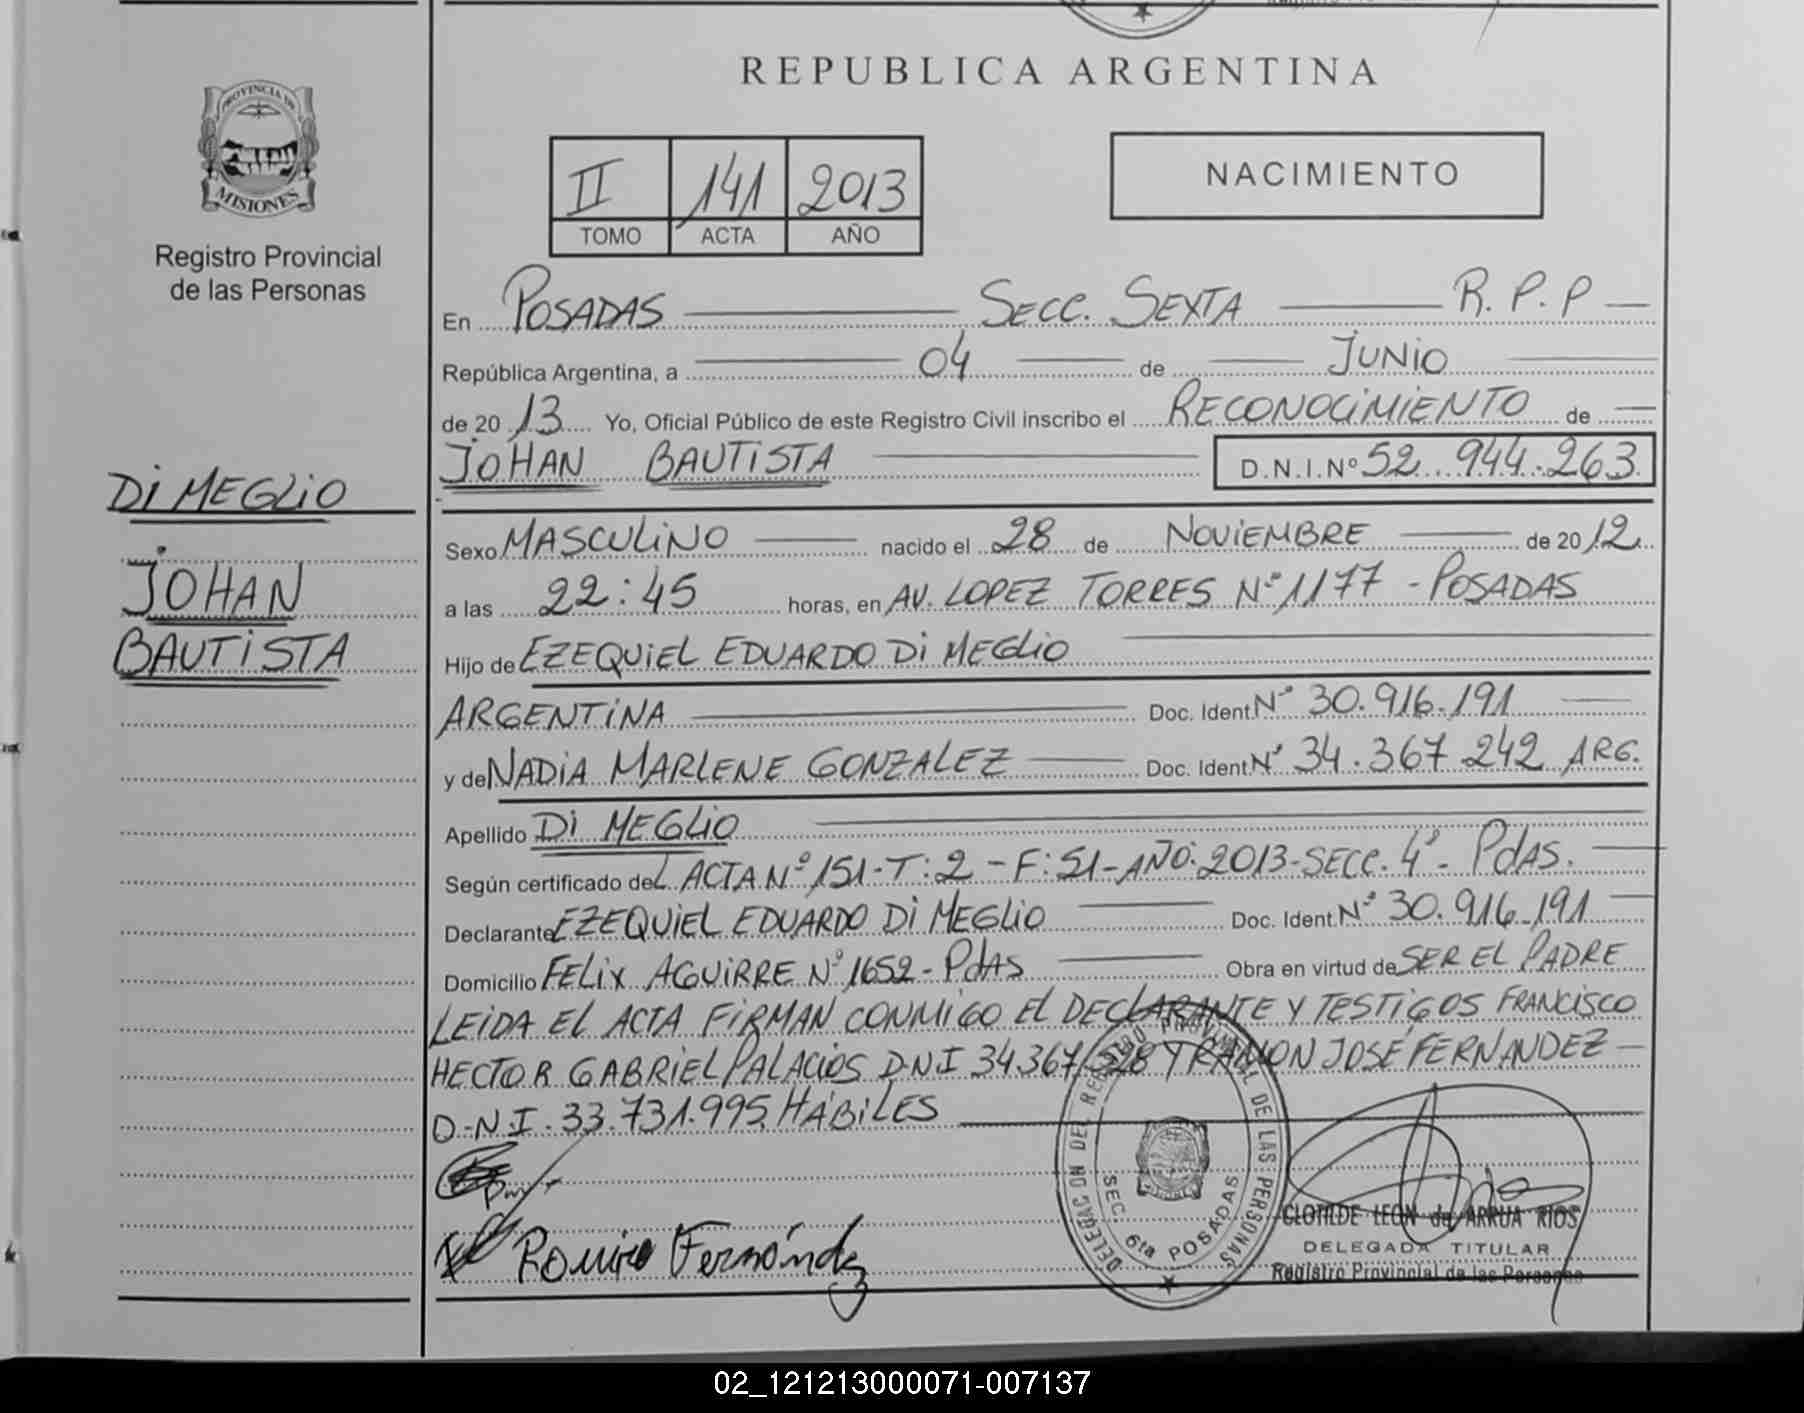 REPUBLICA ARGENTINA
PROVINCIA DE
MISIONES
Registro Provincial
de las Personas
II 141 2013
TOMO ACTA AÑO
NACIMIENTO
En POSADAS SECC. SEXTA R.P.P
República Argentina, a 04 de JUNIO
de 20 13 Yo, Oficial Público de este Registro Civil inscribo el RECONOCIMIENTO de
JOHAN BAUTISTA D.N.I.Nº 52.944.263
DI MEGLIO
JOHAN
BAUTISTA
Sexo MASCULINO nacido el 28 de NOVIEMBRE de 20 12
a las 22:45 horas, en AV. LOPEZ TORRES Nº 1177 - POSADAS
Hijo de EZEQUIEL EDUARDO DI MEGLIO
ARGENTINA Doc. Ident. Nº 30.916.191
y de NADIA MARLENE GONZALEZ Doc. Ident. Nº 34.367.242 ARG.
Apellido DI MEGLIO
Según certificado de L ACTA Nº 151-T:2-F:51-AÑO:2013-SECC.4ª- PdAS.
Declarante EZEQUIEL EDUARDO DI MEGLIO Doc. Ident. Nº 30.916.191
Domicilio FELIX AGUIRRE Nº 1652-PdAS Obra en virtud de SER EL PADRE
LEIDA EL ACTA FIRMAN CONMIGO EL DECLARANTE Y TESTIGOS FRANCISCO
HECTOR GABRIEL PALACIOS D.N.I 34.367.528 Y RAMON JOSÉ FERNANDEZ
D.N.I. 33.731.995 HÁBILES
DELEGACION DEL REGISTRO PROVINCIAL DE LAS PERSONAS
SEC. 6ta POSADAS
CLOTILDE LEON de ARRUA RIOS
DELEGADA TITULAR
Registro Provincial de las Personas
Fernández
02_121213000071-007137